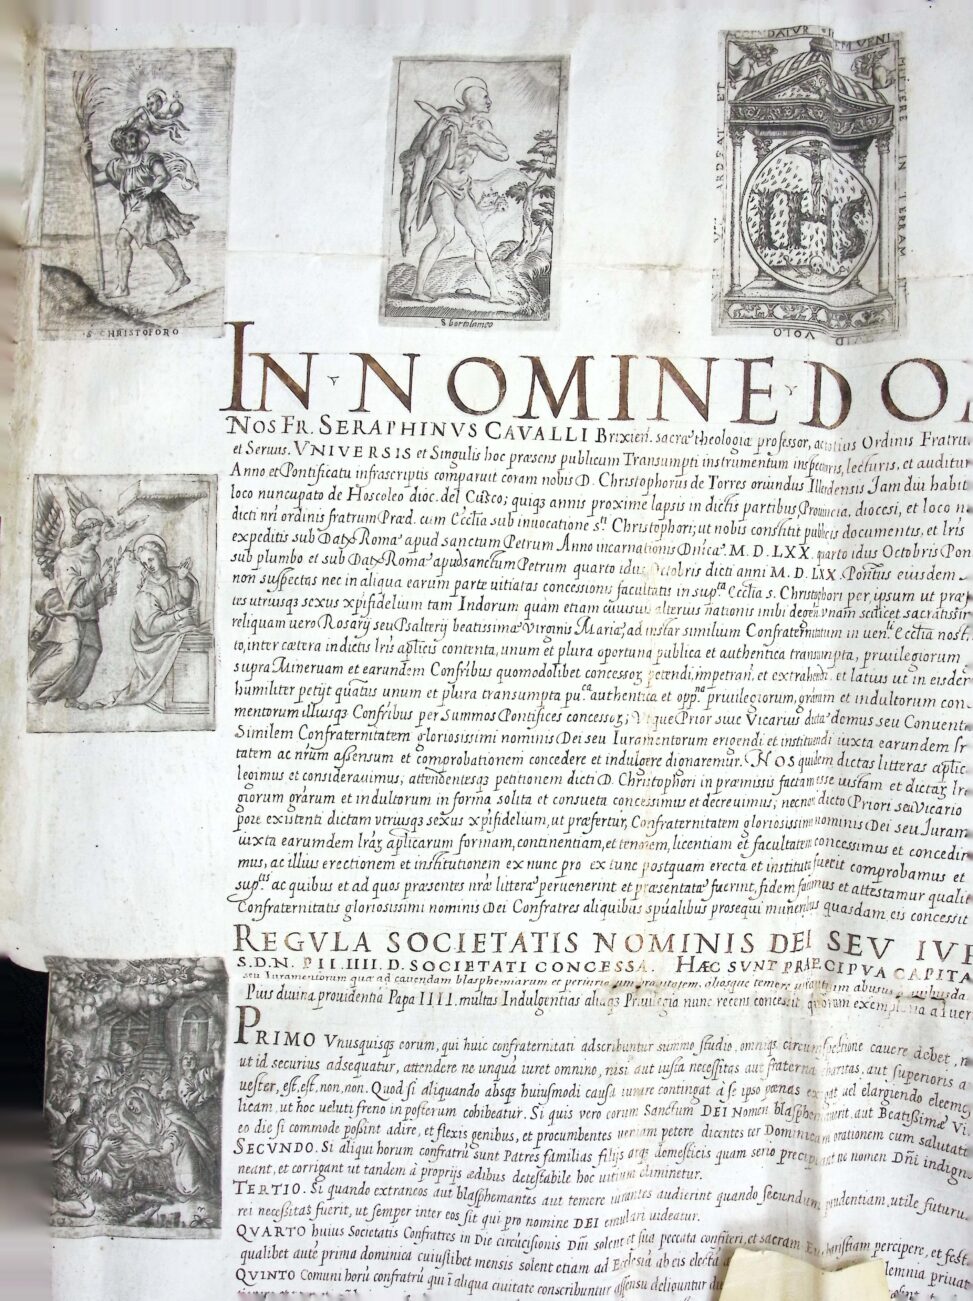 ACCENDATUR
IEM VENI
MITTERE IN TERRAM
ARDEAT ET
IHS
QUID VOLO
S CHRISTOFORO
S bortolameo
IN NOMINE DO
NOS FR. SERAPHINVS CAVALLI Brixien. sacræ theologiæ professor, ac totius Ordinis Fratru
et Seruus. VNIVERSIS et Singulis hoc præsens publicum Transumpti instrumentum inspecturis, lecturis, et auditur
Anno et Pontificatu infrascriptis comparuit coram nobis D. Christophorus de Torres oriundus Illerdensis Jam diu habit
loco nuncupato de Hoscoleo dioc. del Cusco; quiqs annis proxime lapsis in dictis partibus Prouincia, diocesi, et loco n
dicti nri ordinis fratrum Præd. cum Ecclia sub inuocatione sti Christophori; ut nobis constitit publicis documentis, et lris
expeditis sub Datæ Romæ apud sanctum Petrum Anno incarnationis Dnicæ M.D.LXX. quarto idus Octobris Pon
sub plumbo et sub Datæ Romæ apud sanctum Petrum quarto idus Octobris dicti anni M.D.LXX. Pontus eiusdem
non suspectas nec in aliqua earum parte uitiatas concessionis facultatis in supta Ecclia s. Christophori per ipsum ut præf
tes utriusqs sexus xpifidelium tam Indorum quam etiam cuiusuis alterius nationis inibi degen. vnam scilicet sacratissi
reliquam uero Rosarij seu Psalterij beatissimæ Virginis Mariæ, ad instar similium Confraternitatum in uenli Ecclia nost
to, inter cætera in dictis lris aplicis contenta, unum et plura oportuna publica et authentica transumpta, priuilegiorum
supra Mineruam et earundem Confribus quomodolibet concessor petendi, impetran. et extrahendi. et latius ut in eisdem
humiliter petijt quatus unum et plura transumpta puca authentica et oppna priuilegiorum, grarum et indultorum con
mentorum illiusqs Confribus per Summos Pontifices concessor; Vtque Prior siue Vicarius dictæ domus seu Conuent
Similem Confraternitatem gloriosissimi nominis Dei seu Iuramentorum erigendi et instituendi iuxta earundem lr
tatem ac nrum assensum et comprobationem concedere et indulgere dignaremur. NOS quidem dictas litteras aplic
legimus et considerauimus; attendentesqs petitionem dicti D. Christophori in præmissis factam esse iustam et dictar lr
giorum grarum et indultorum in forma solita et consueta concessimus et decreuimus; necnon dicto Priori seu Vicario
pore existenti dictam vtriusqs sexus xpifidelium, ut præfertur, Confraternitatem gloriosissimi nominis Dei seu Juram
iuxta earumdem lrar aplicarum formam, continentiam, et tenorem, licentiam et facultatem concessimus et concedi
mus, ac illius erectionem et institutionem ex nunc pro ex tunc postquam erecta et instituta fuerit comprobamus et
suptas ac quibus et ad quos præsentes nræ litteræ peruenerint et præsentatæ fuerint, fidem facimus et attestamur qualit
Confraternitatis gloriosissimi nominis Dei Confratres aliquibus spualibus prosequi muneribus quasdam eis concessit
REGVLA SOCIETATIS NOMINIS DEI SEV IVR
S.D.N. PII.IIII.D. SOCIETATI CONCESSA. HÆC SVNT PRÆCIPVA CAPITA
seu Iuramentorum quæ ad cauendam blasphemiarum et periurio
Pius diuina prouidentia Papa IIII. multas Indulgentias aliaqs Priuilegia nunc recens concessit, quorum exemplaria
PRIMO Vnusquisqs eorum, qui huic confraternitati adscribuntur summo studio, omniqs circumspectione cauere debet,
ut id securius adsequatur, attendere ne unqua iuret omnino, nisi aut iusta necessitas aut fraterna charitas, aut superioris a
uester, est, est, non, non. Quod si aliquando absqs huiusmodi causa iurare contingat a se ipso poenas exigat uel elargiendo eleemo
licam, ut hoc ueluti freno in posterum cohibeatur. Si quis vero eorum Sanctum DEI Nomen blasphemauerit, aut Beatissimæ Vi
eo die si commode possint adire, et flexis genibus, et procumbentes ueniam petere dicentes ter Dominicam orationem cum salutati
SECVNDO. Si aliqui horum confratru sunt Patres familias filijs atqs domesticis quam serio præcipiant ne nomen Dni indign
neant, et corrigant ut tandem à proprijs ædibus detestabile hoc uitium eliminetur.
TERTIO. Si quando extraneos aut blasphemantes aut temere iurantes audierint quando secundum prudentiam, utile futuru
rei necessitas fuerit, ut semper inter eos sit qui pro nomine DEI emulari uideatur.
QVARTO huius Societatis Confratres in Die circucisionis Dni solent et sua peccata confiteri, et sacram Eucharistiam percipere, et fest
qualibet aute prima dominica cuiuslibet mensis solent etiam ad Ecclesia ab eis electa
QVINTO Comuni horu confratru qui i aliqua ciuitate conscribuntur assensu deliguntur du